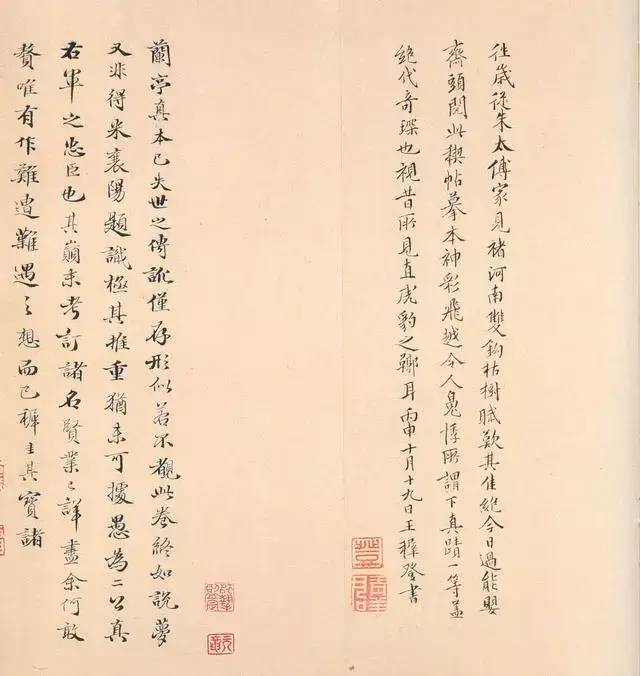 往歲從朱太傅家見褚河南雙鈎枯樹賦歎其佳絕今日過能嬰
齋頭閱此禊帖摹本神彩飛越令人鬼悸所謂下真蹟一等蓋
絕代奇琛也視昔所見直虎豹之鞹耳丙申十月十九日王穉登書
蘭亭真本已失世之傳訛僅存形似若不觀此卷終如說夢
又非得米襄陽題識極其推重猶未可據愚為二公真
右軍之忠臣也其顛末考訂諸名賢業々詳盡余何敢
贅唯有作難遭難遇之想而已穉圭其寶諸